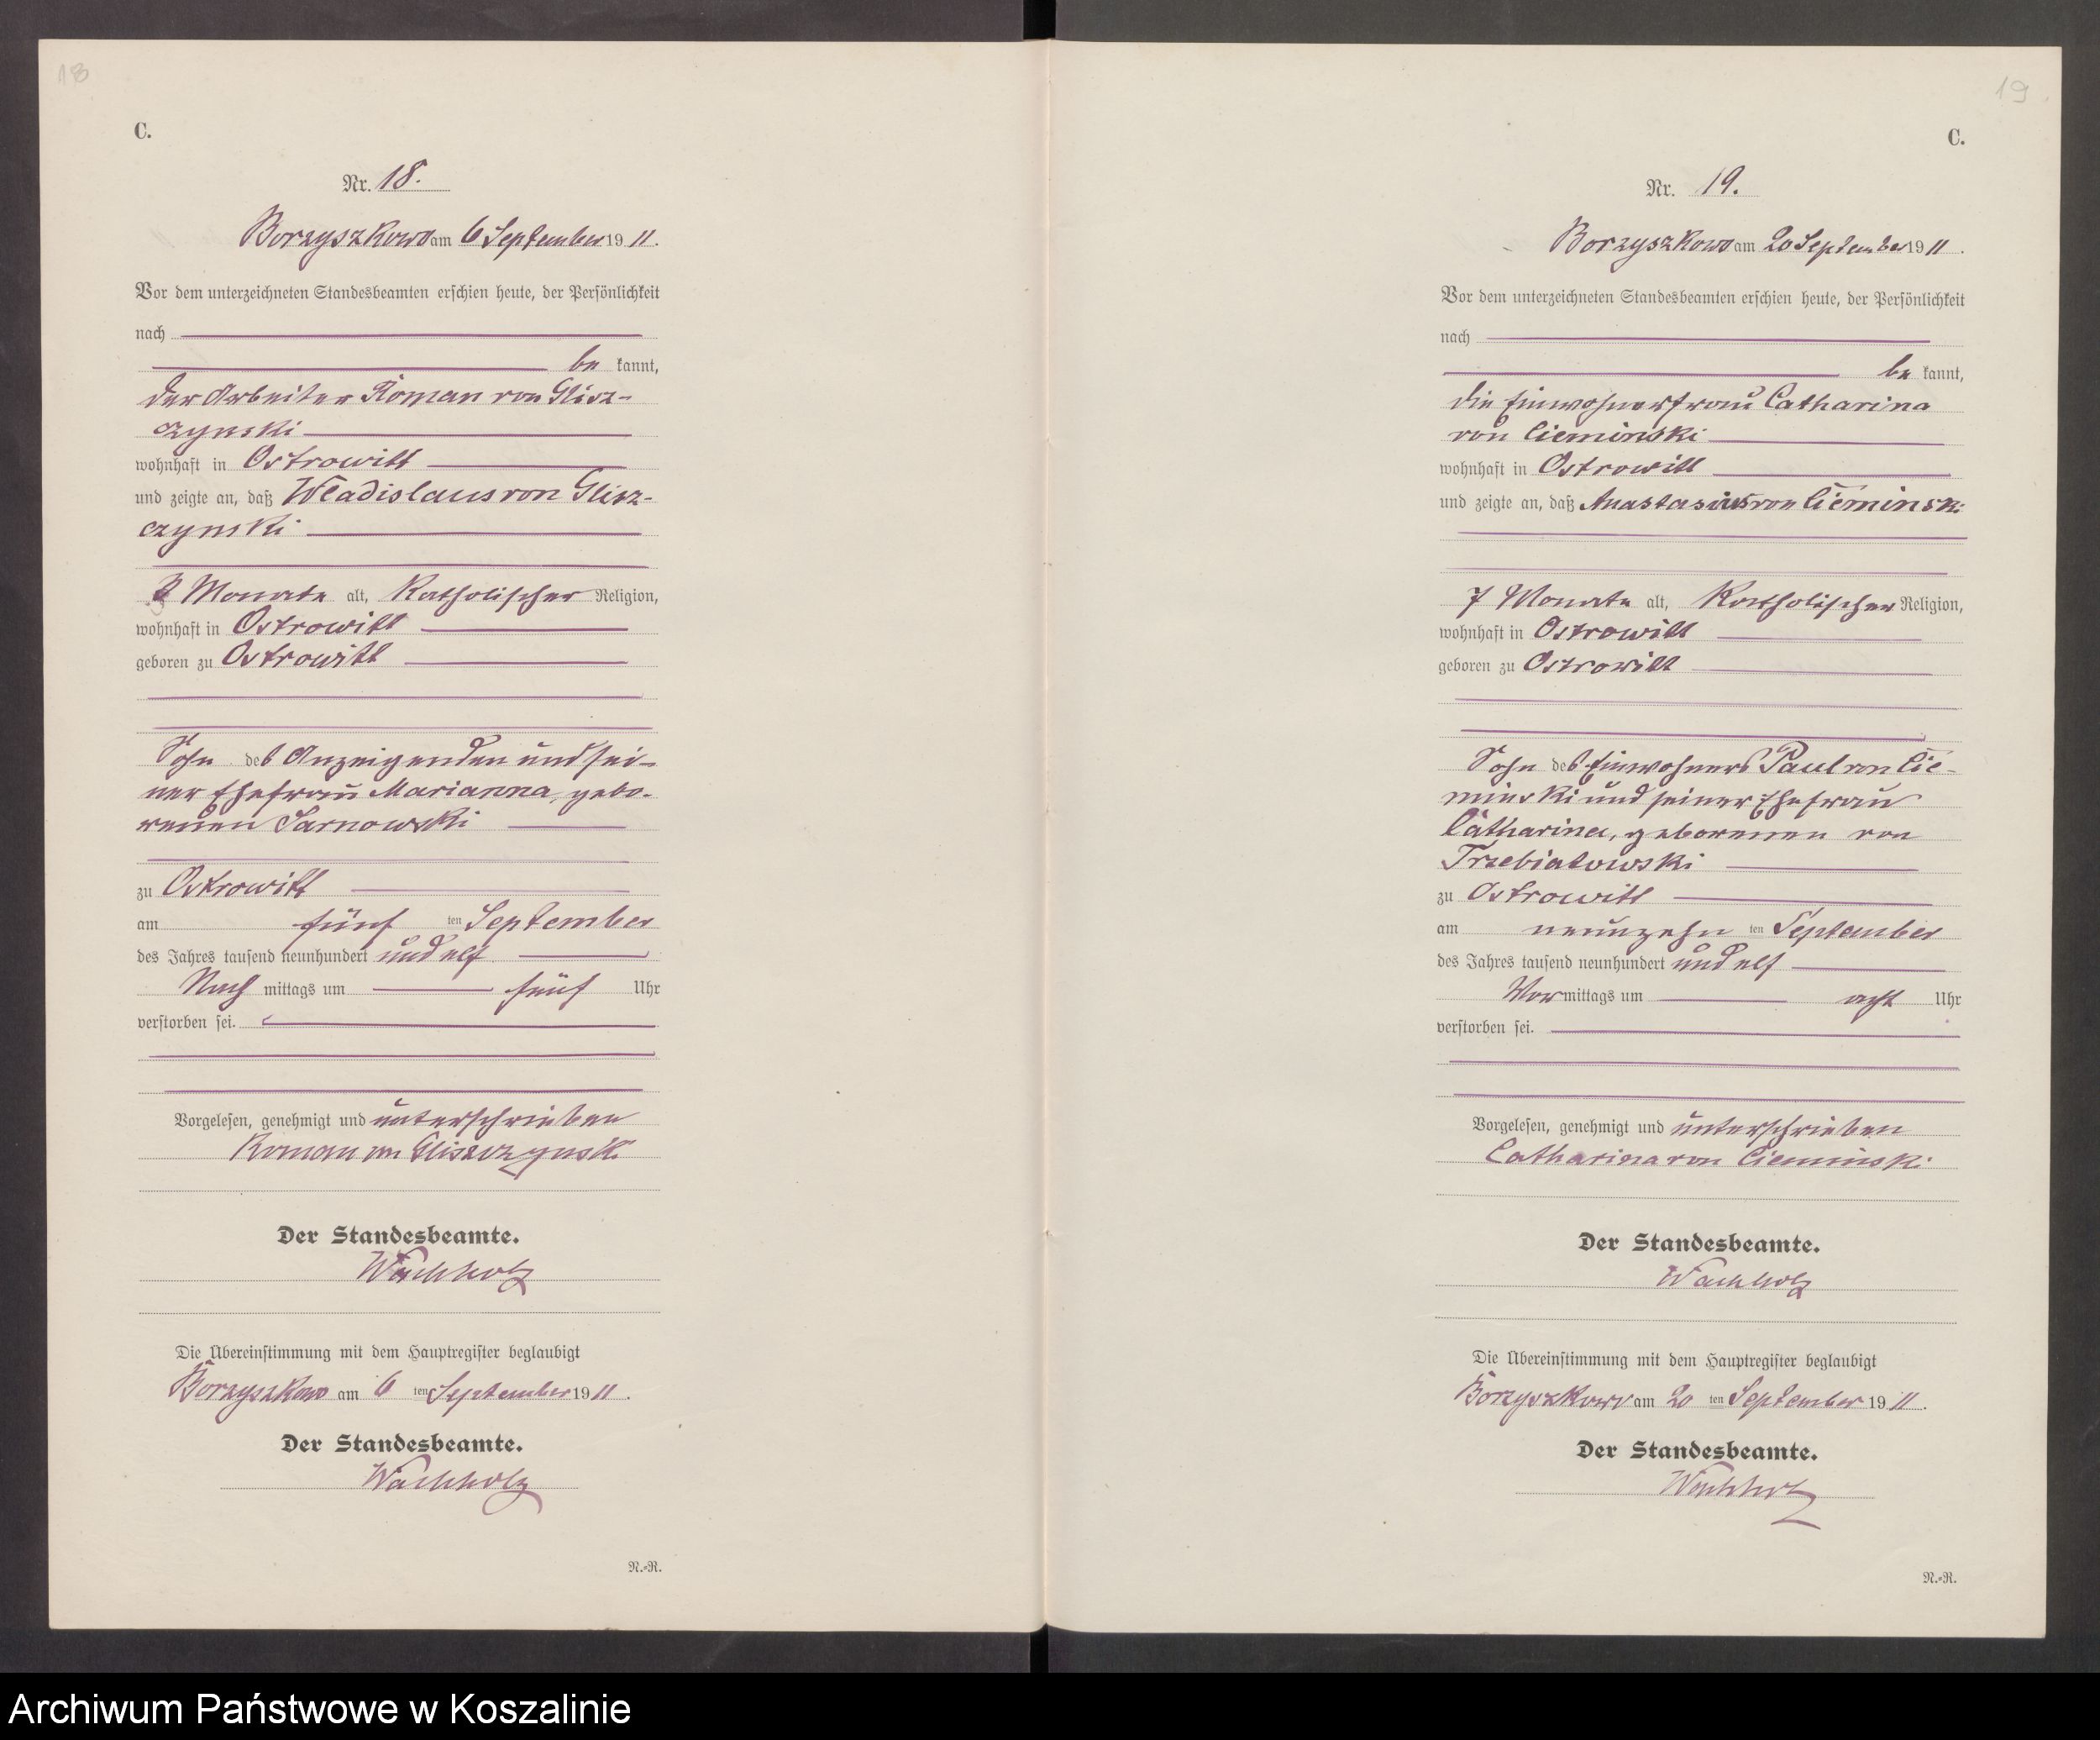 18
C.
Nr. 18.
Borzyszkowo am 6 September 1911.
Vor dem unterzeichneten Standesbeamten erschien heute, der Persönlichkeit
nach
be kannt,
der Arbeiter Roman von Glisz-
czynski
wohnhaft in Ostrowitt
und zeigte an, daß Wladislaus von Glisz-
czynski
Monate alt, katholischer Religion,
wohnhaft in Ostrowitt
geboren zu Ostrowitt
Sohn des Anzeigenden und sei-
ner Ehefrau Marianna, gebo-
renen Sarnowski
zu Ostrowitt
am fünf ten September
des Jahres tausend neunhundert und elf
Nach mittags um fünf Uhr
verstorben sei.
Vorgelesen, genehmigt und unterschrieben
Roman von Gliszczynski
Der Standesbeamte.
Wachholz
Die Übereinstimmung mit dem Hauptregister beglaubigt
Borzyszkowo am 6 ten September 1911.
Der Standesbeamte.
Wachholz
N.-R.
19
C.
Nr. 19.
Borzyszkowo am 20 September 1911.
Vor dem unterzeichneten Standesbeamten erschien heute, der Persönlichkeit
nach
be kannt,
die Einwohnerfrau Catharina
von Cieminski
wohnhaft in Ostrowitt
und zeigte an, daß Anastasius von Cieminski
7 Monate alt, katholischer Religion,
wohnhaft in Ostrowitt
geboren zu Ostrowitt
Sohn des Einwohners Paul von Cie-
minski und seiner Ehefrau
Catharina, geborenen von
Trzebiatowski
zu Ostrowitt
am neunzehn ten September
des Jahres tausend neunhundert und elf
Vor mittags um acht Uhr
verstorben sei.
Vorgelesen, genehmigt und unterschrieben
Catharina von Cieminski
Der Standesbeamte.
Wachholz
Die Übereinstimmung mit dem Hauptregister beglaubigt
Borzyszkowo am 20 ten September 1911.
Der Standesbeamte.
Wachholz
N.-R.
Archiwum Państwowe w Koszalinie